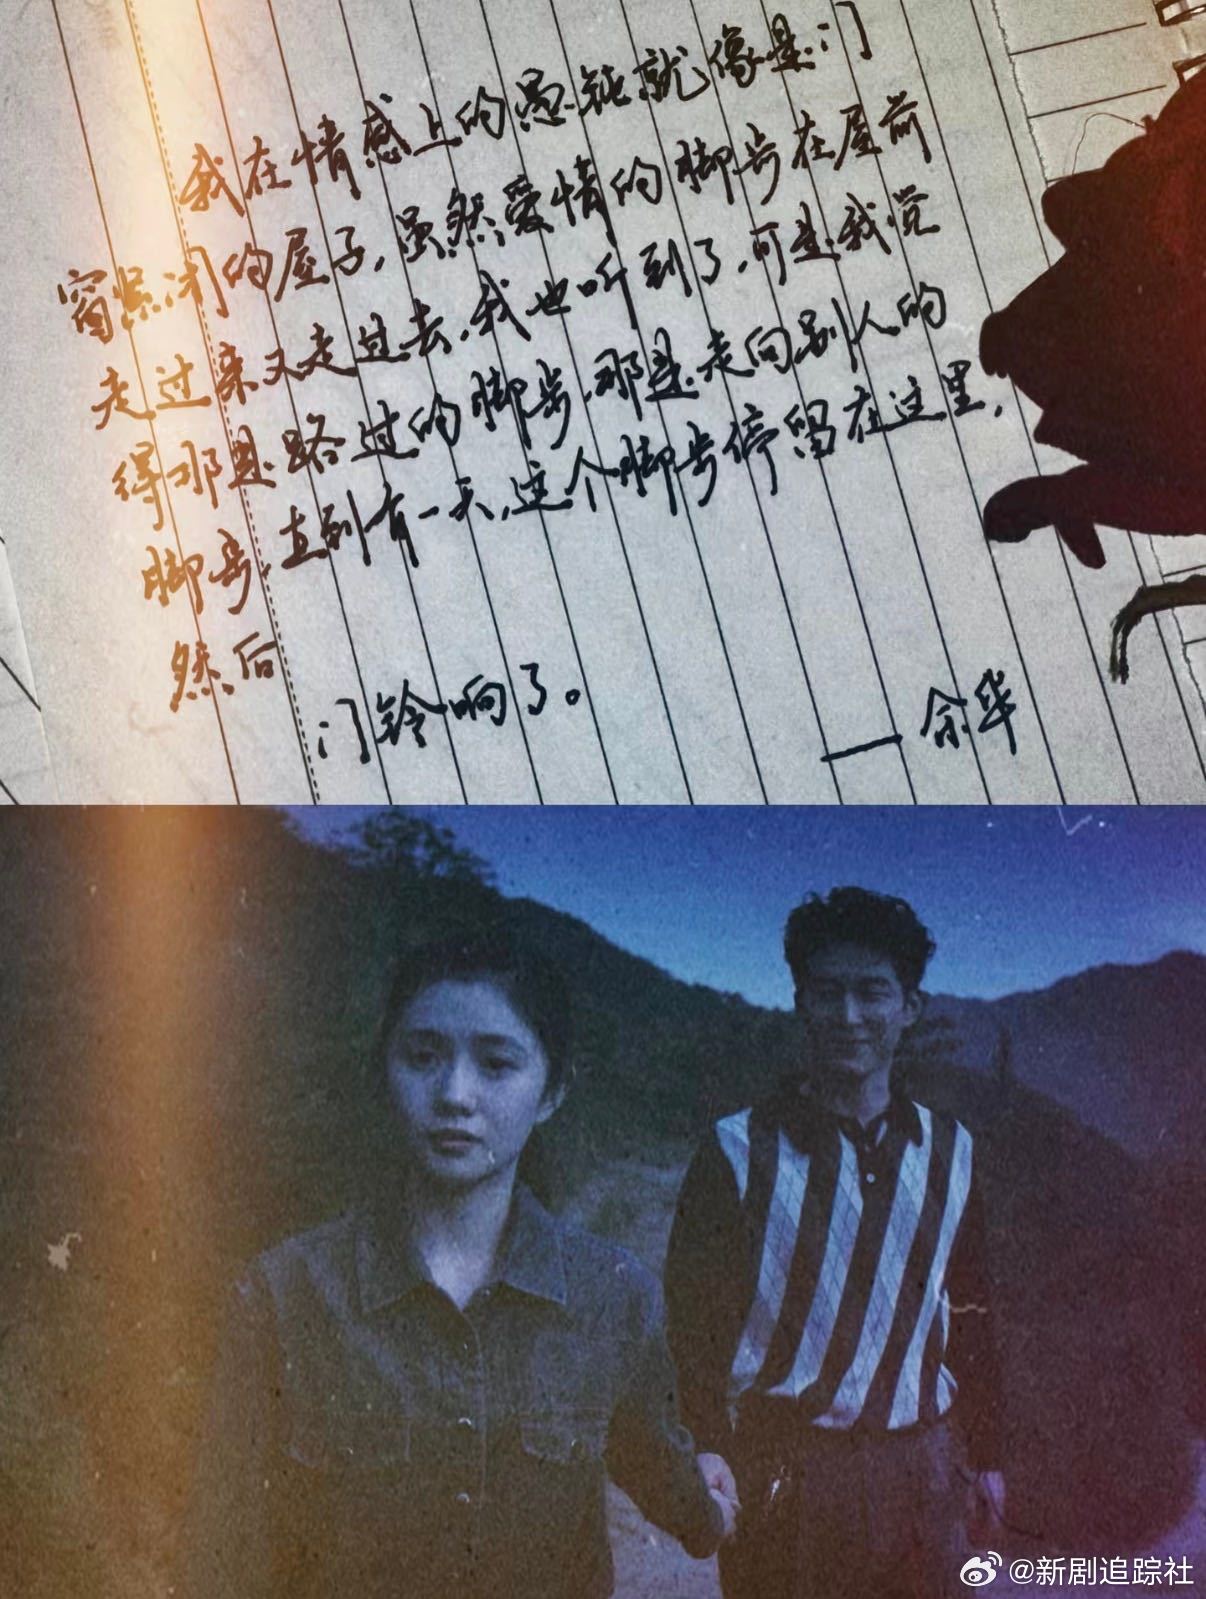 我在情感上的愚钝就像是门
窗紧闭的屋子，虽然爱情的脚步在屋前
走过来又走过去，我也听到了，可是我觉
得那是路过的脚步，那是走向别人的
脚步，直到有一天，这个脚步停留在这里，
然后
门铃响了。
——余华
@新剧追踪社